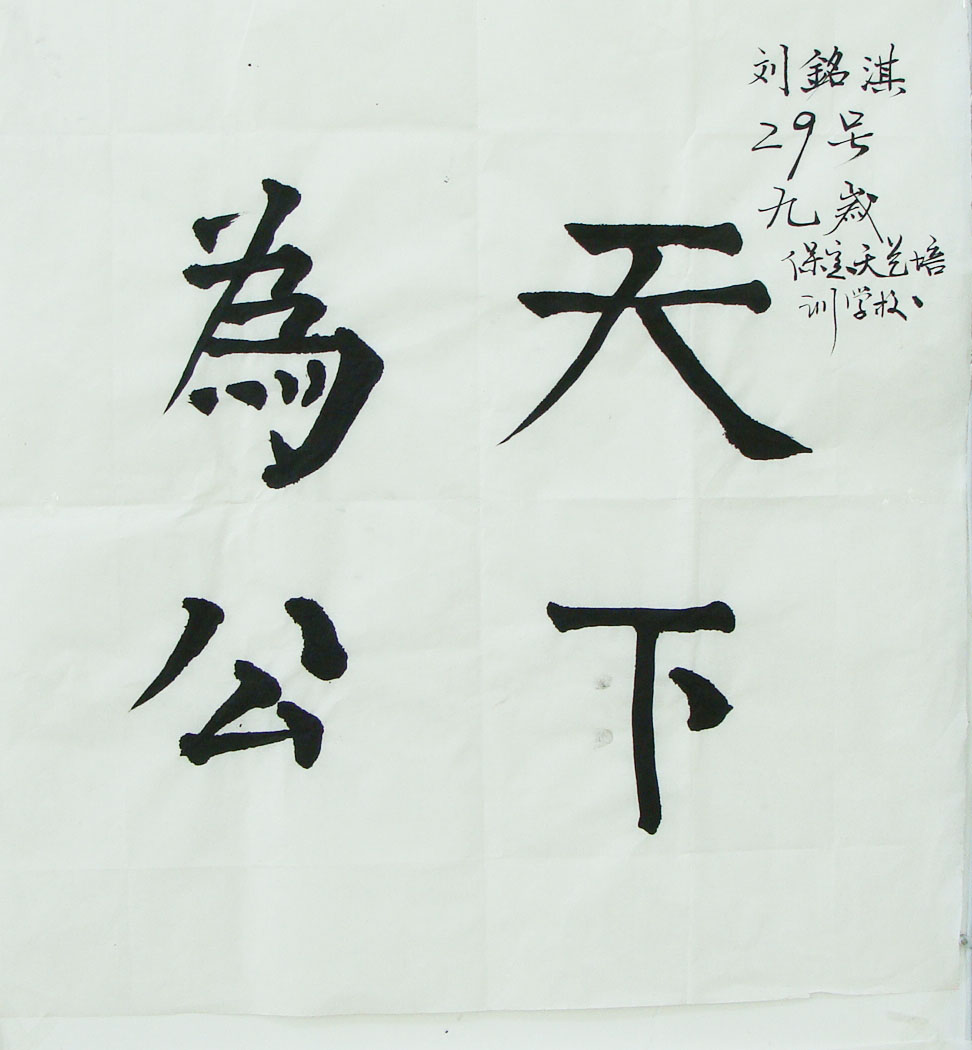 刘銘淇
29号
九歲
保定天艺培
训学校
天下
為公